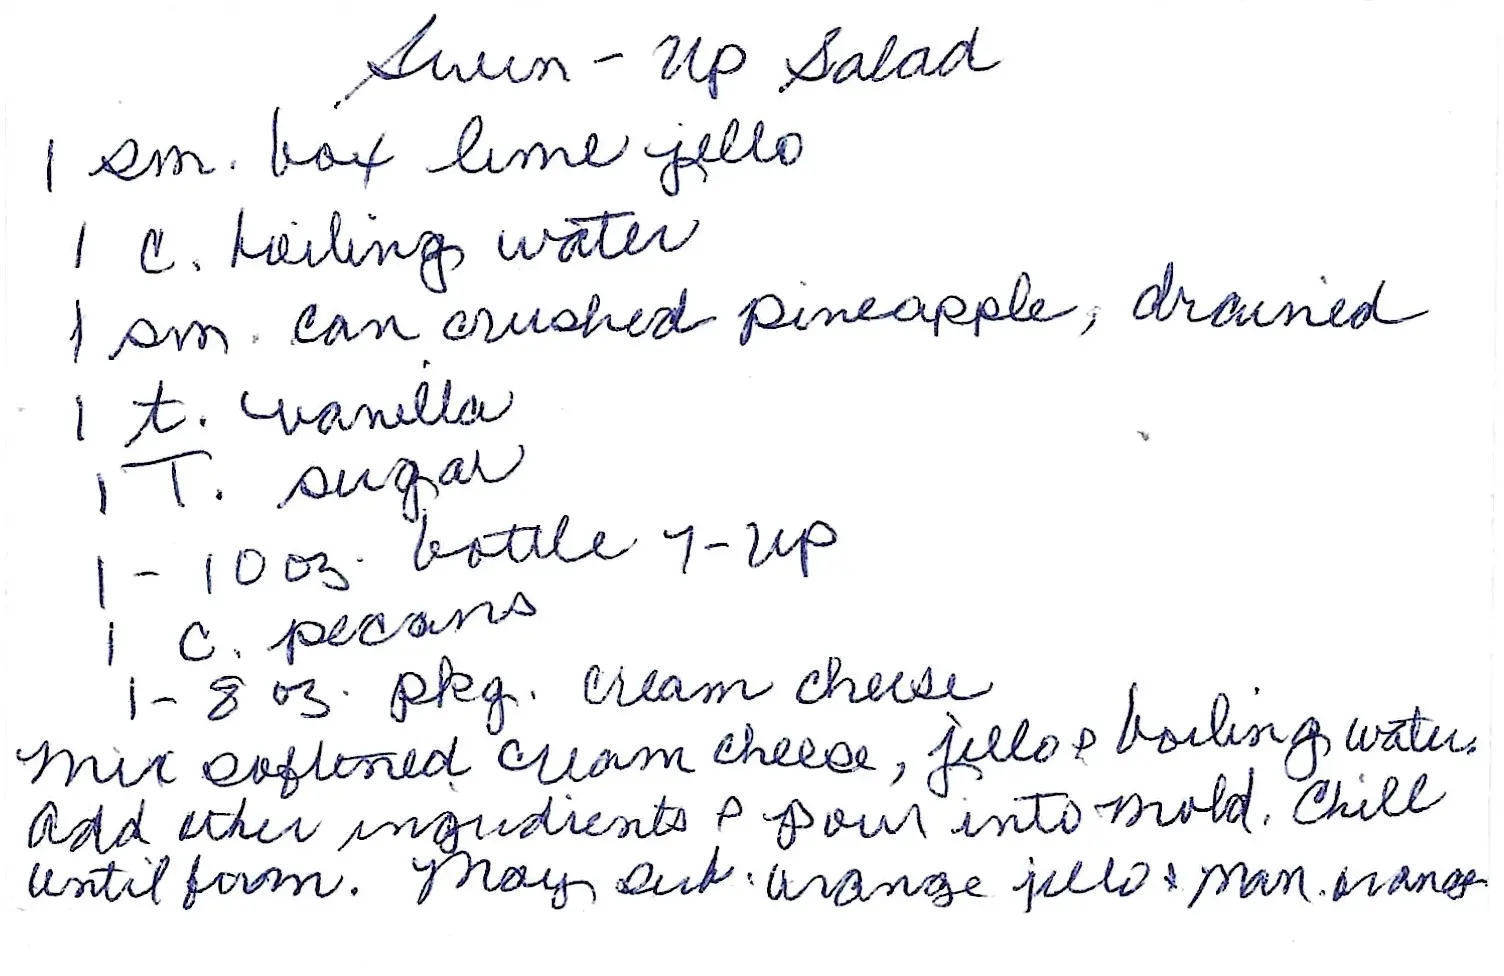 Seven-Up Salad
1 sm. box lime jello
1 c. boiling water
1 sm. can crushed pineapple, drained
1 t. vanilla
1 T. sugar
1-10 oz. bottle 7-Up
1 c. pecans
1-8 oz. pkg. cream cheese
Mix softened cream cheese, jello & boiling water.
Add other ingredients & pour into mold. Chill
until form. May sub. orange jello & man. orange